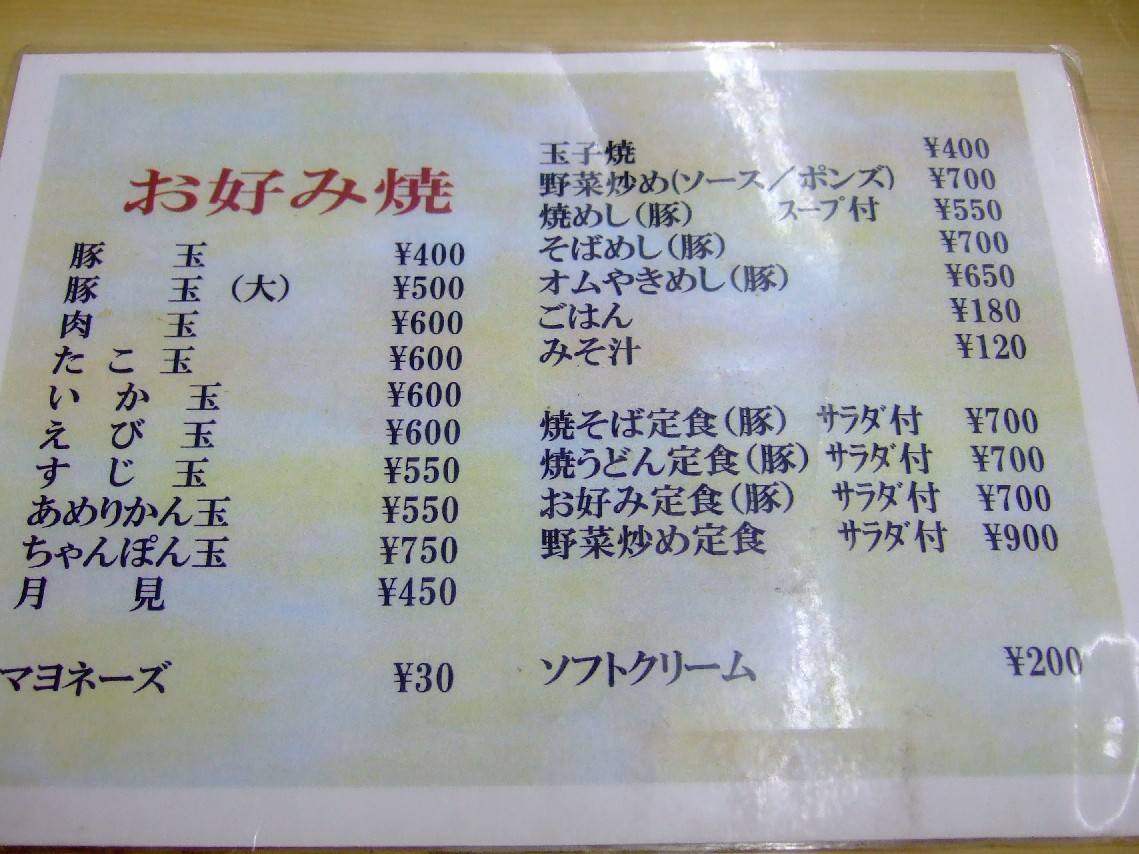 お好み焼
豚玉 ¥400
豚玉（大） ¥500
肉玉 ¥600
たこ玉 ¥600
いか玉 ¥600
えび玉 ¥600
すじ玉 ¥550
あめりかん玉 ¥550
ちゃんぽん玉 ¥750
月見 ¥450
マヨネーズ ¥30
玉子焼 ¥400
野菜炒め(ソース／ポンズ) ¥700
焼めし(豚) ｽｰﾌﾟ付 ¥550
そばめし(豚) ¥700
オムやきめし(豚) ¥650
ごはん ¥180
みそ汁 ¥120
焼そば定食(豚) ｻﾗﾀﾞ付 ¥700
焼うどん定食(豚) ｻﾗﾀﾞ付 ¥700
お好み定食(豚) ｻﾗﾀﾞ付 ¥700
野菜炒め定食 ｻﾗﾀﾞ付 ¥900
ソフトクリーム ¥200